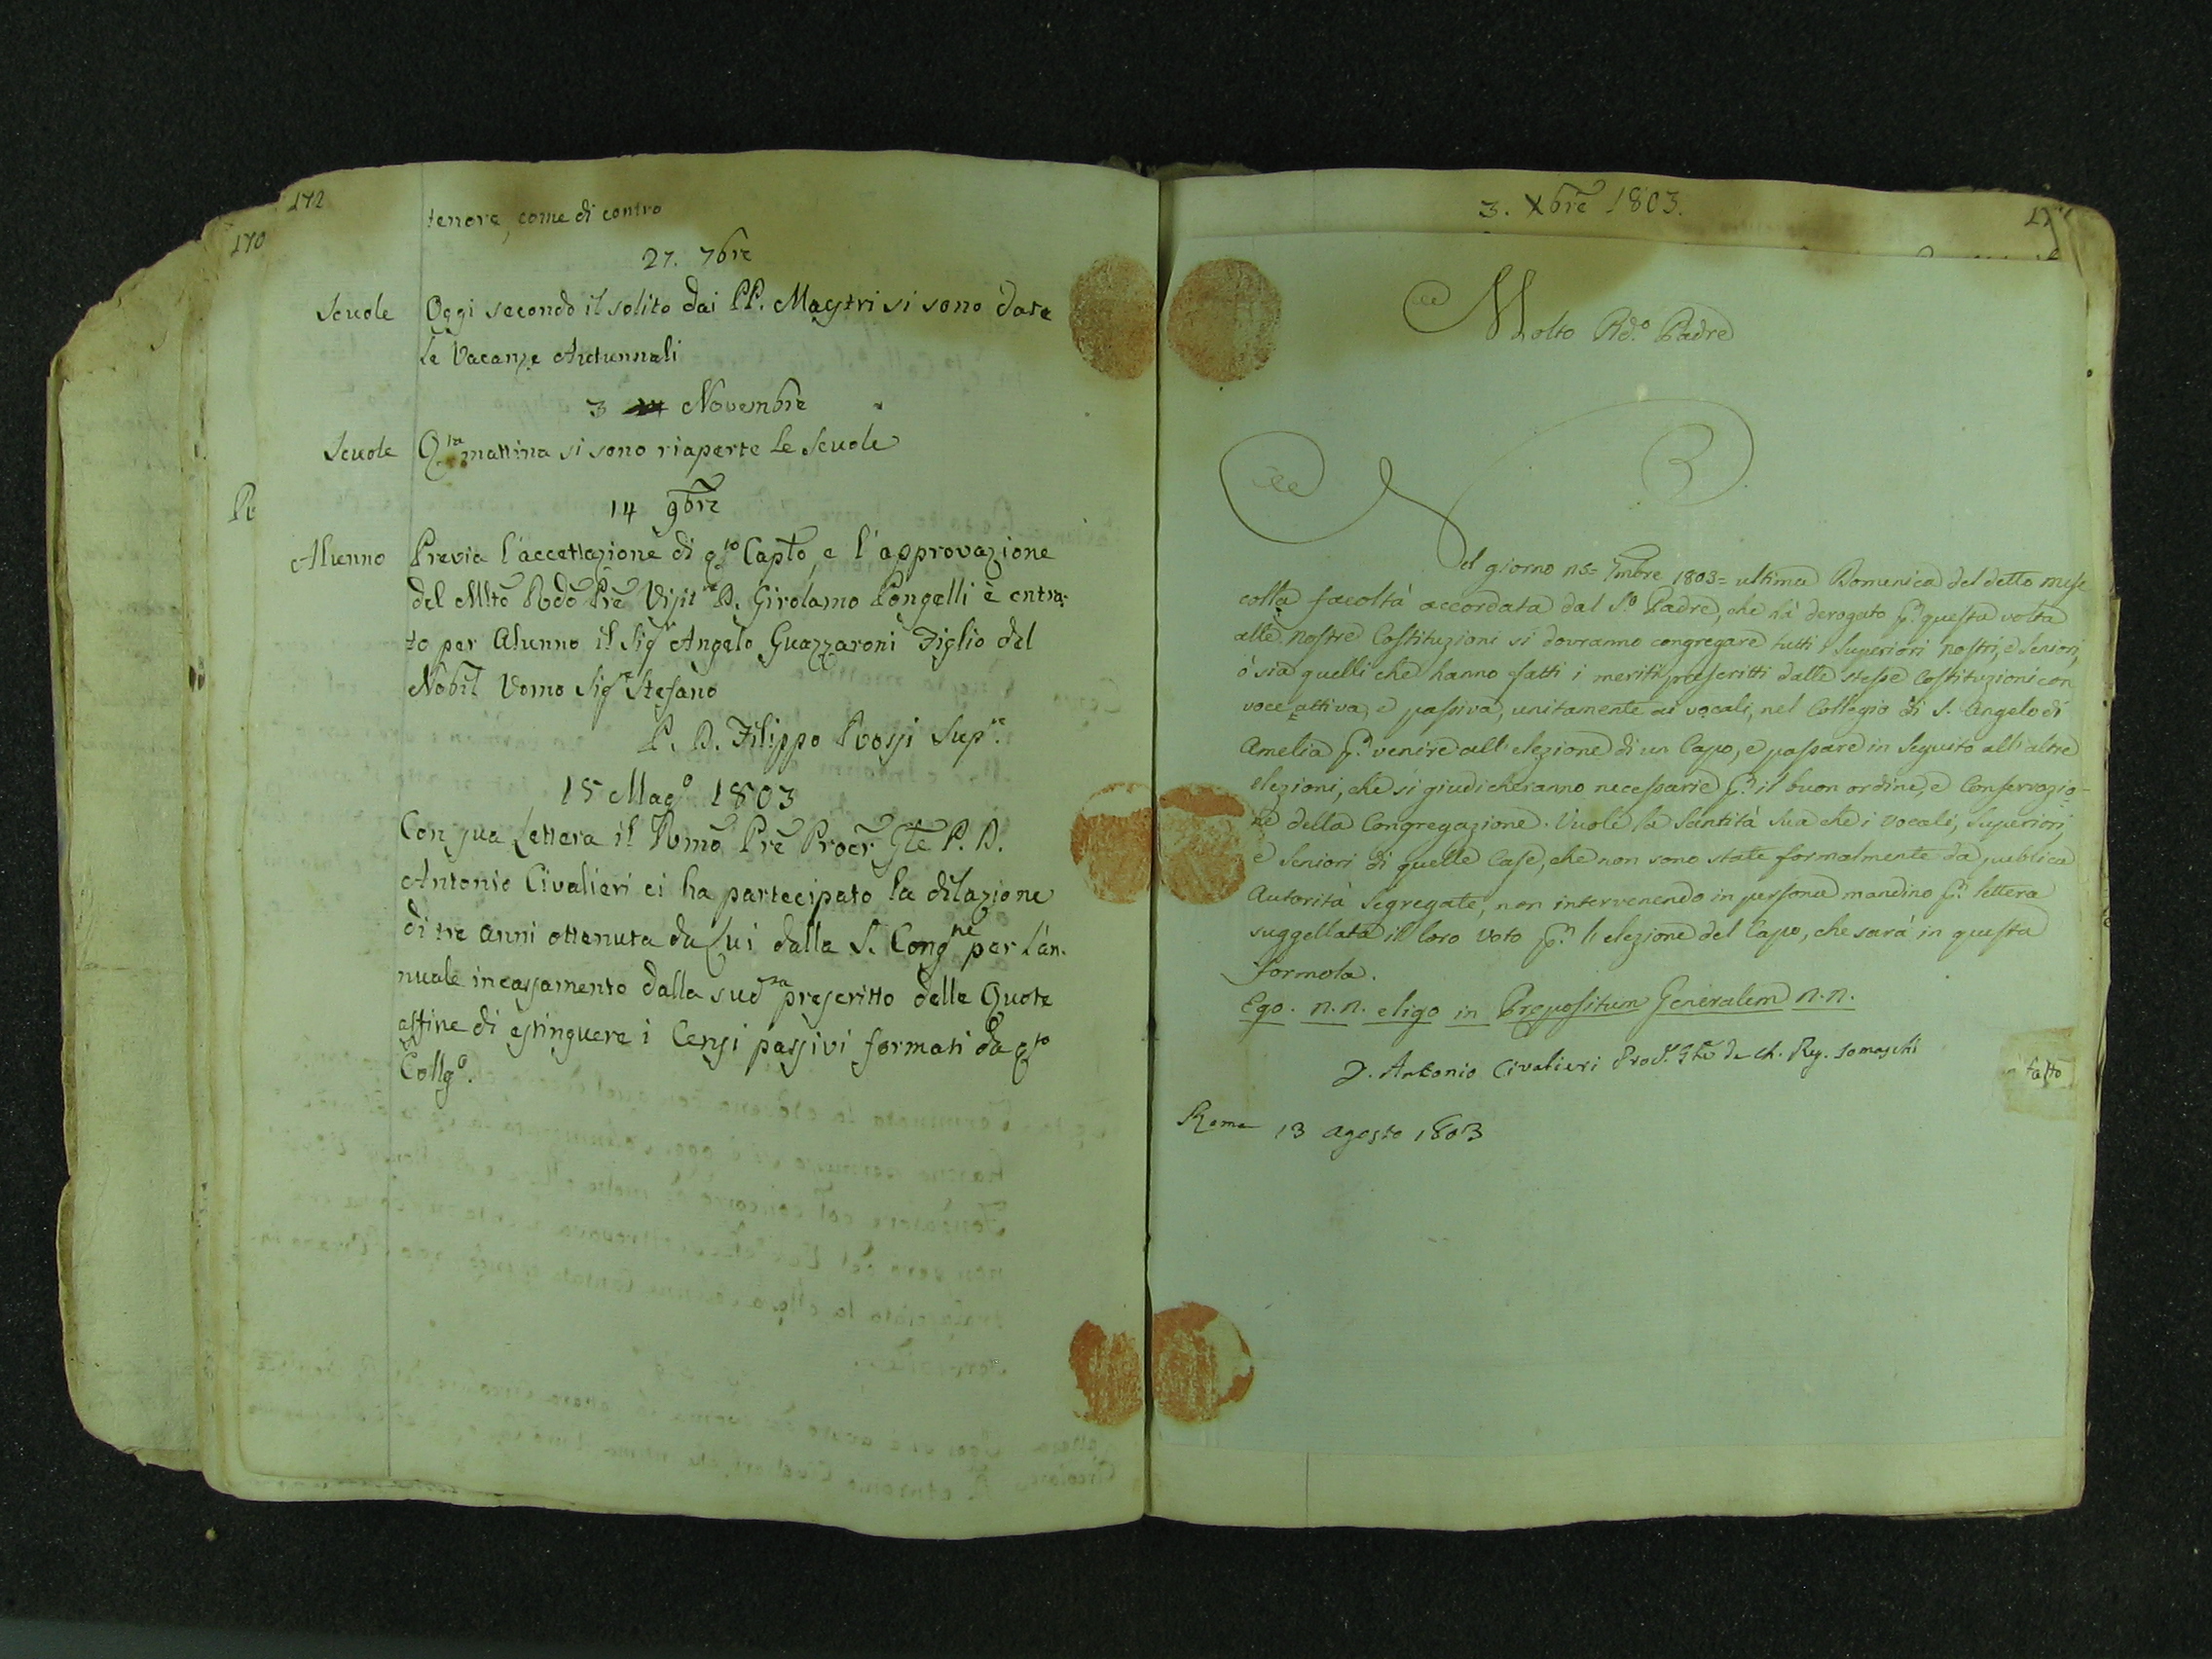 172
170
tenore, come di contro
27. 7bre
Scuole Oggi secondo il solito dai PP. Maestri si sono date
le Vacanze Autunnali
3 Novembre
Scuole Qta mattina si sono riaperte le Scuole
14 9bre
Alunno Previa l'accettazione di qto Capto, e l'approvazione
del Mlto Rdo Pre Visitre D. Girolamo Pongelli è entra-
to per Alunno il Sigr Angelo Guazzaroni Figlio del
Nobil Uomo Sigr Stefano
P. D. Filippo Rossi Supre.
15 Mago 1803
Con sua Lettera il Rmo Pre Procr Gle P. D.
Antonio Civalieri ci ha partecipato la dilazione
di tre anni ottenuta da Lui dalla S. Congne per l'an-
nuale incassamento dalla sudta prescritto delle Quote
affine di estinguere i Censi passivi formati da qto
Collgo.
3. Xbre 1803.
Molto Rdo. Padre
Nel giorno 25= 7mbre 1803= ultima Domenica del detto mese
colla facoltà accordata dal So Padre, che hà derogato pr questa volta
alle nostre Costituzioni si dovranno congregare tutti Superiori nostri, e Seniori,
ò sia quelli che hanno fatti i meriti prescritti dalle stesse Costituzioni con
voce attiva, e passiva, unitamente ai vocali, nel Collegio di S. Angelo di
Amelia pr venire all'elezione di un Capo, e passare in seguito all'altre
elezioni, che si giudicheranno necessarie pr il buon ordine, e Conservazio-
ne della Congregazione. Vuole la Santità Sua che i Vocali, Superiori,
e Seniori di quelle Case, che non sono state formalmente da publica
Autorità Segregate, non intervenendo in persona mandino pr lettera
suggellata il loro Voto pr l'elezione del Capo, che sarà in questa
formola.
Ego. n.n. eligo in Prepositum Generalem n.n.
D. Antonio Civalieri Procr. Gle de Ch. Reg. Somaschi
Roma 13 Agosto 1803